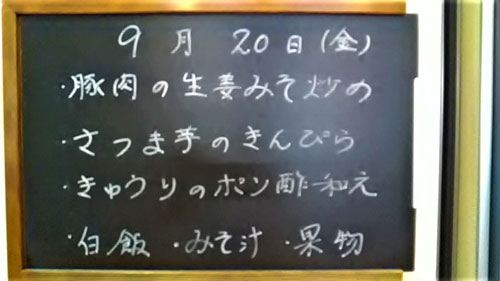 9月20日(金)
・豚肉の生姜みそ炒め
・さつま芋のきんぴら
・きゅうりのポン酢和え
・白飯・みそ汁・果物